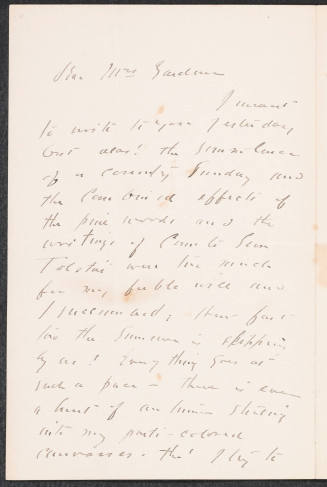 Dear Mrs Gardner
I meant
to write to you yesterday,
but alas! the somnolence
of a country Sunday and
the combined effects of
the pine woods and the
writings of Count Leon
Tolstoi were too much
for my feeble will and
I succumbed; How fast
too the Summer is slipping
by us! Every thing goes at
such a pace - there is even
a hint of autumn stealing
into my parti-colored
canvasses - tho' I try to